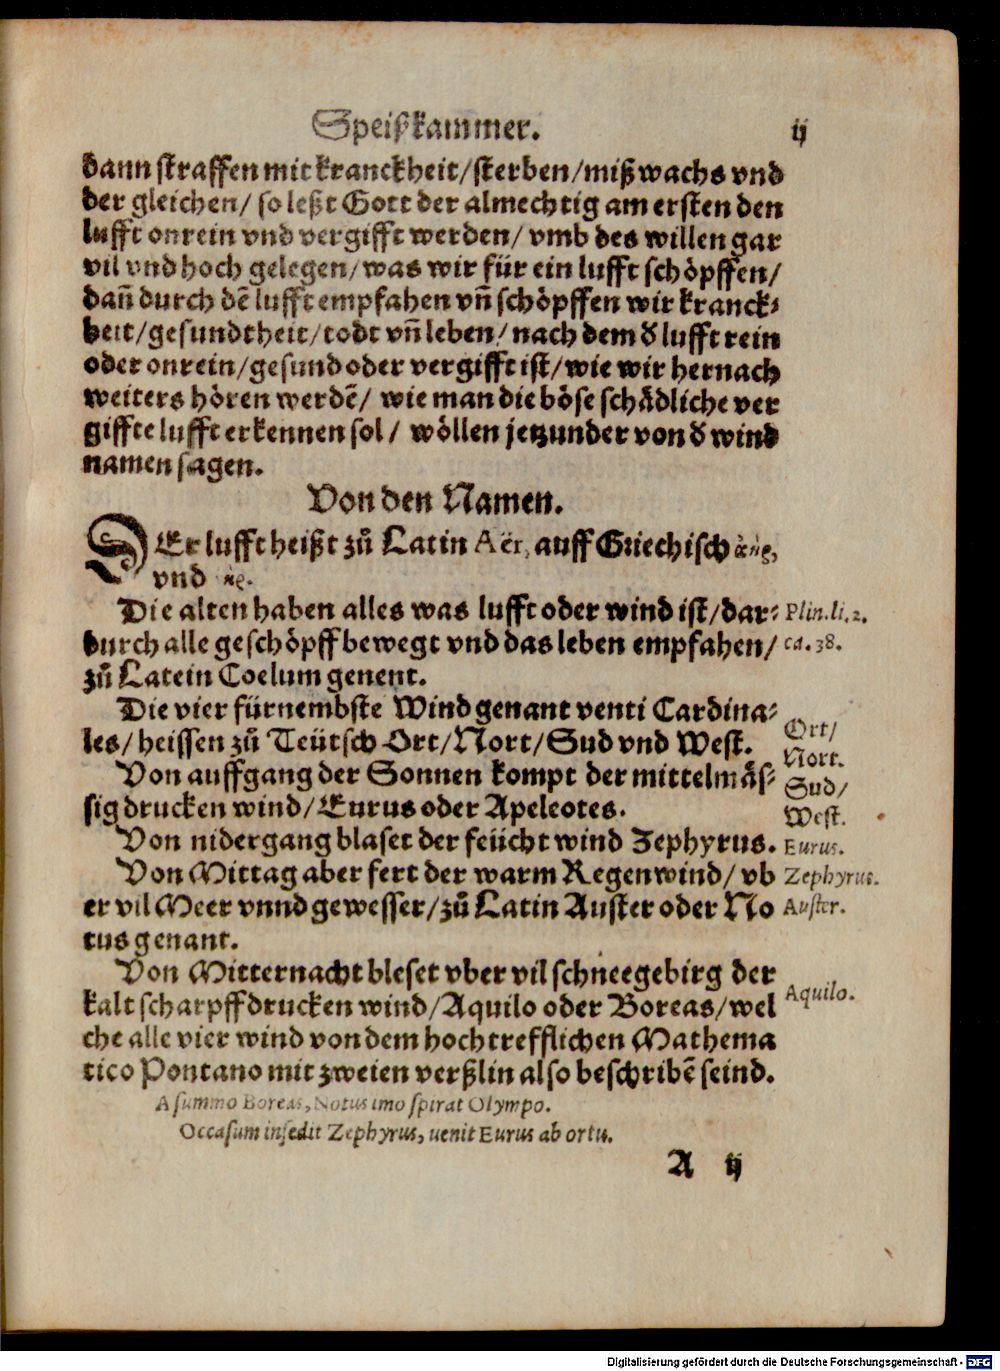 Speißkammer. ij
dann straffen mit kranckheit/sterben/mißwachs vnd
der gleichen/ so leßt Gott der almechtig am ersten den
lufft onrein vnd vergifft werden/ vmb des willen gar
vil vnd hoch gelegen/was wir für ein lufft schöpffen/
dañ durch dẽ lufft empfahen vñ schöpffen wir kranck⸗
heit/gesundtheit/todt vñ leben/ nach dem d̕ lufft rein
oder onrein/gesund oder vergifft ist/wie wir hernach
weiters hören werdẽ/ wie man die böse schädliche ver
giffte lufft erkennen sol/ wöllen jetzunder von d̕ wind
namen sagen.
Von den Namen.
DEr lufft heißt zů Latin Aër, auff Griechisch ἀὴρ,
vnd
Die alten haben alles was lufft oder wind ist/dar⸗
Plin.li.2.
durch alle geschöpff bewegt vnd das leben empfahen/
ca.38.
zů Latein Coelum genent.
Die vier fürnembste Wind genant venti Cardina⸗
les/heissen zů Teütsch Ort/Nort/Sud vnd West.
Ort/
Nort.
Von auffgang der Sonnen kompt der mittelmäs⸗
Sud/
sig drucken wind/Eurus oder Apeleotes.
West.
Von nidergang blaset der feücht wind Zephyrus.
Eurus.
Von Mittag aber fert der warm Regenwind/ vb
Zephyrus.
er vil Meer vnnd gewesser/zů Latin Auster oder No
Auster.
tus genant.
Von Mitternacht bleset vber vil schneegebirg der
kalt scharpff drucken wind/Aquilo oder Boreas/wel
Aquilo.
che alle vier wind von dem hochtrefflichen Mathema
tico Pontano mit zweien verßlin also beschribẽ seind.
A summo Boreas, Notus imo spirat Olympo.
Occasum insedit Zephyrus, uenit Eurus ab ortu.
A ij
Digitalisierung gefördert durch die Deutsche Forschungsgemeinschaft - DFG